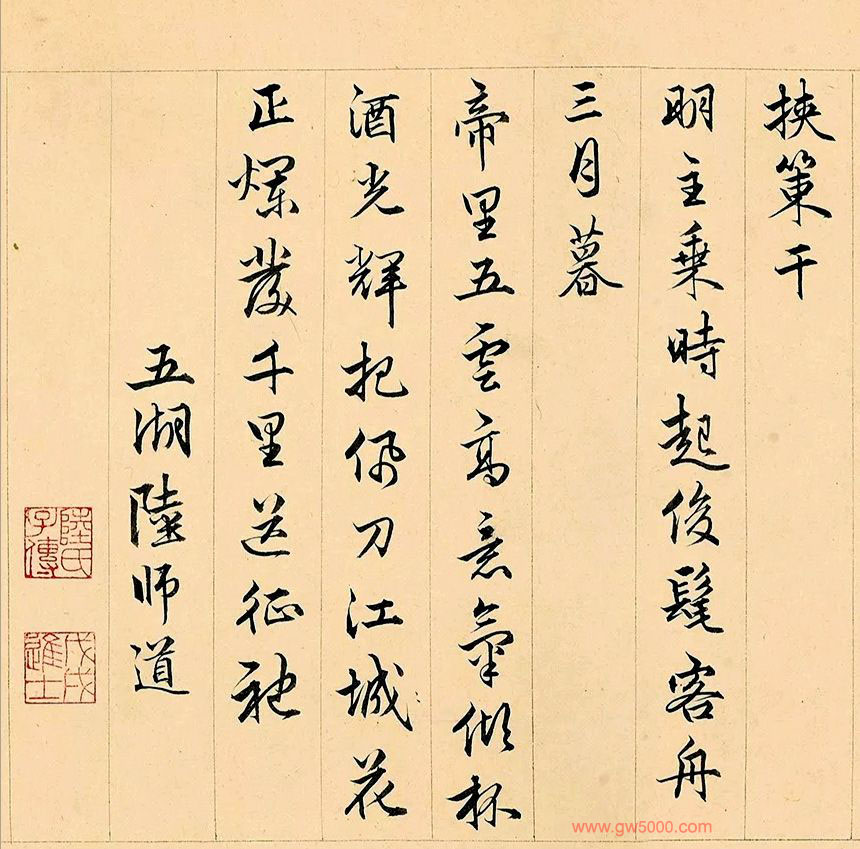 挾策干
明主乗時起俊髦客舟
三月暮
帝里五雲高意氣傾杯
酒光輝把佩刀江城花
正爛發千里送征袍
五湖陸師道
陸氏子傳
戊戌進士
www.gw5000.com